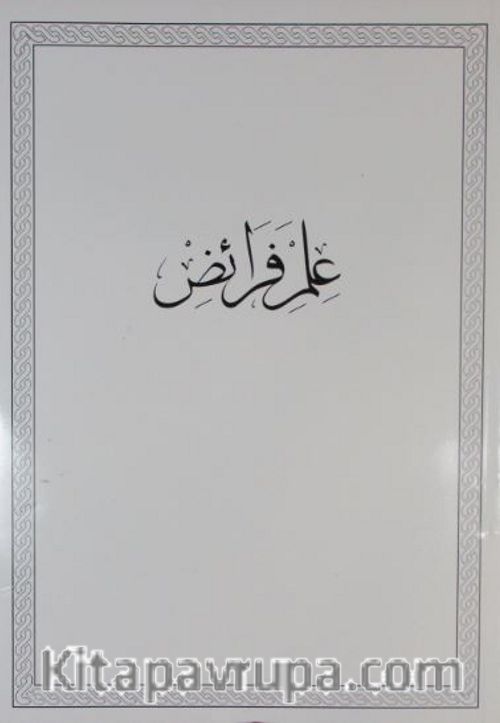 عِلْمِ فَرَائِضْ
Kitapavrupa.com